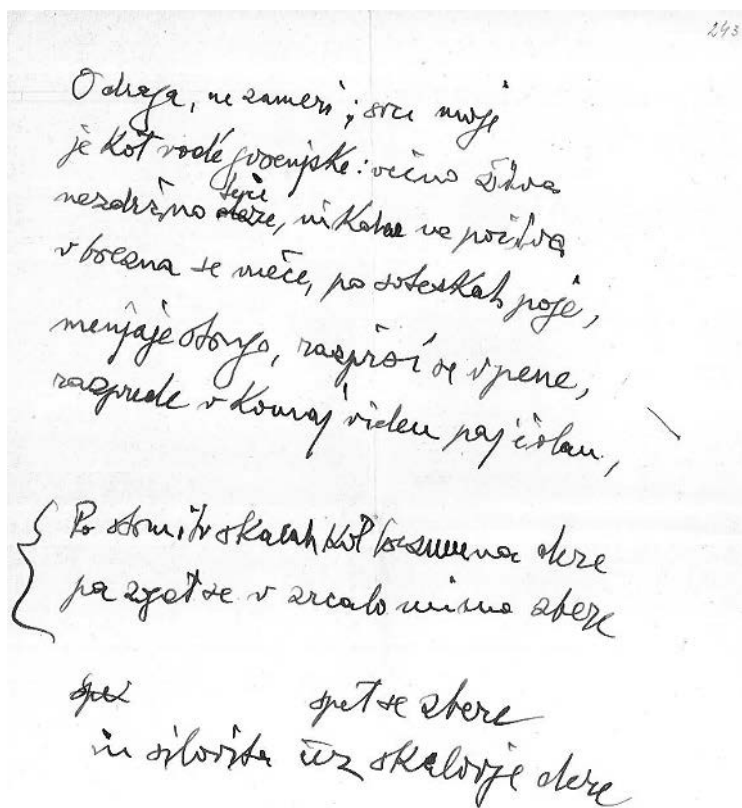 243
O draga, ne zameri; srce moje
je kot vode gorenjske: večno živa
nezdržno dere teče, nikdar ne počiva
v brezna se meče, po soteskah poje,
menjaje strugo, razprši se v pene,
razprede v komaj viden pajčolan,
Po strmih skalah kot brezumna dere
pa zgot se v zrcalo mirno zbere
spet
spet se zbere
in silovita čez skalovje dere